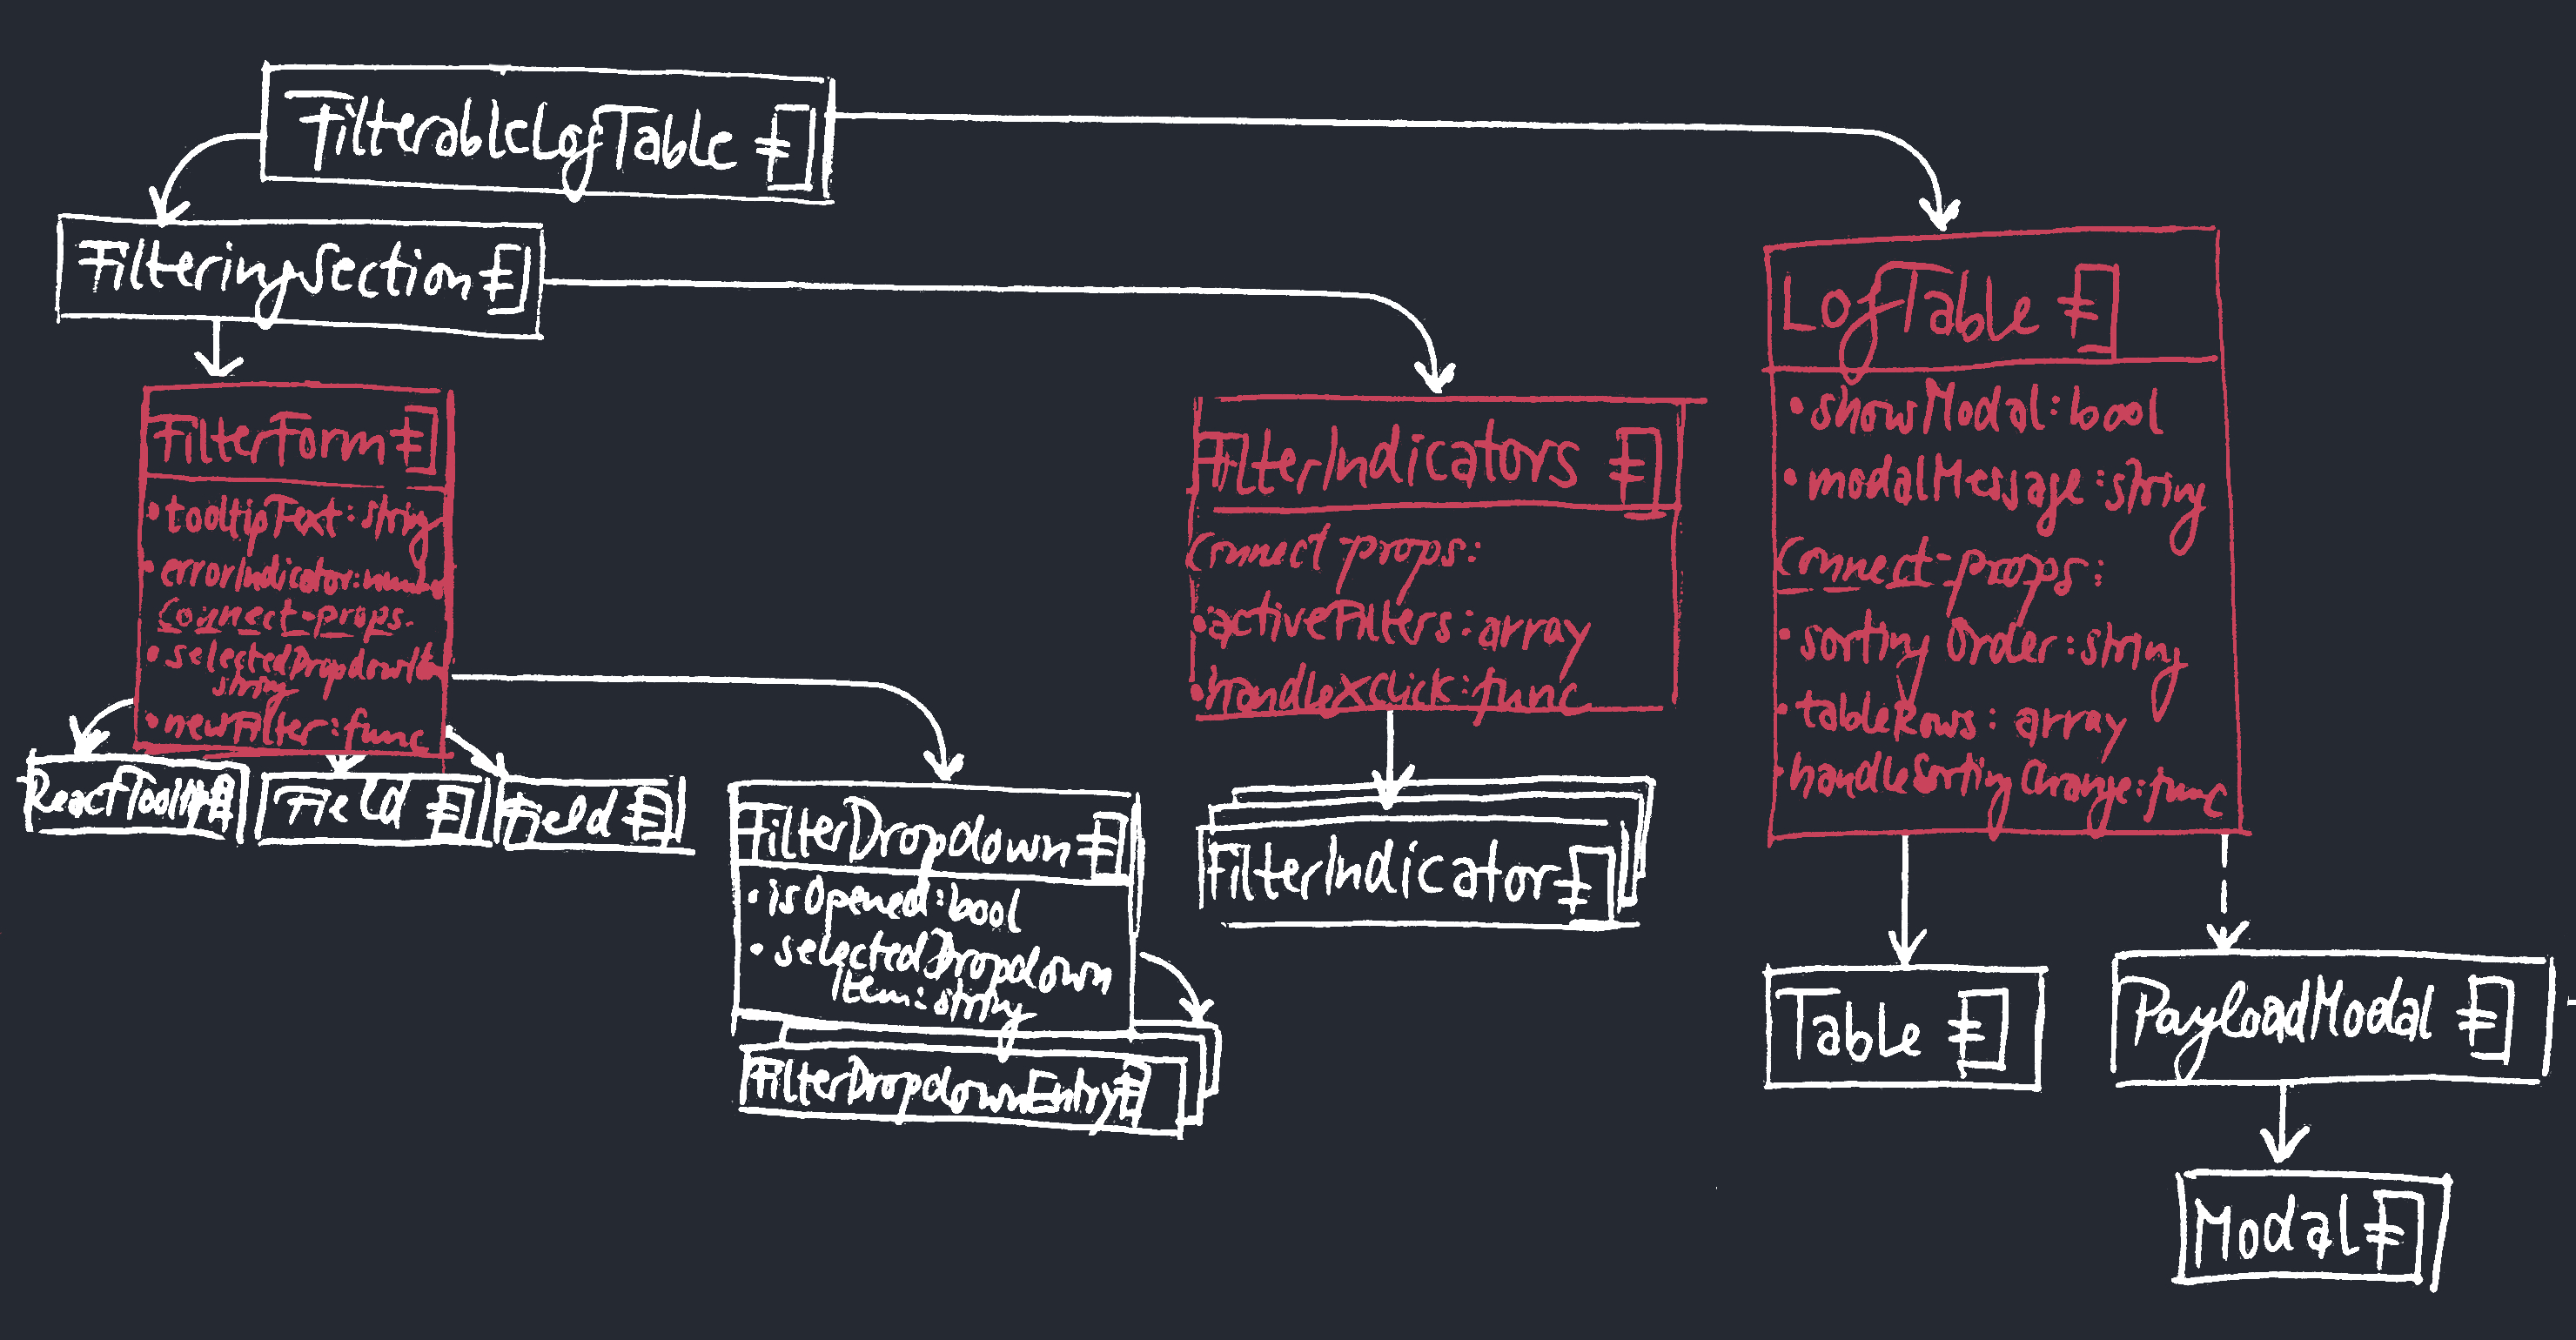 FilterableLogTable
FilteringSection
FilterForm
• tooltipText: string
• errorIndicator: number
Connect-props:
• selectedDropdownItem
string
• newFilter: func
ReactTooltip
Field
Field
FilterDropdown
• isOpened: bool
• selectedDropdown
Item: string
FilterDropdownEntry
FilterIndicators
Connect props:
• activeFilters: array
• handleXClick: func
FilterIndicator
LogTable
• showModal: bool
• modalMessage: string
Connect-props:
• sorting Order: string
• tableRows: array
• handleSortingChange: func
Table
PayloadModal
Modal